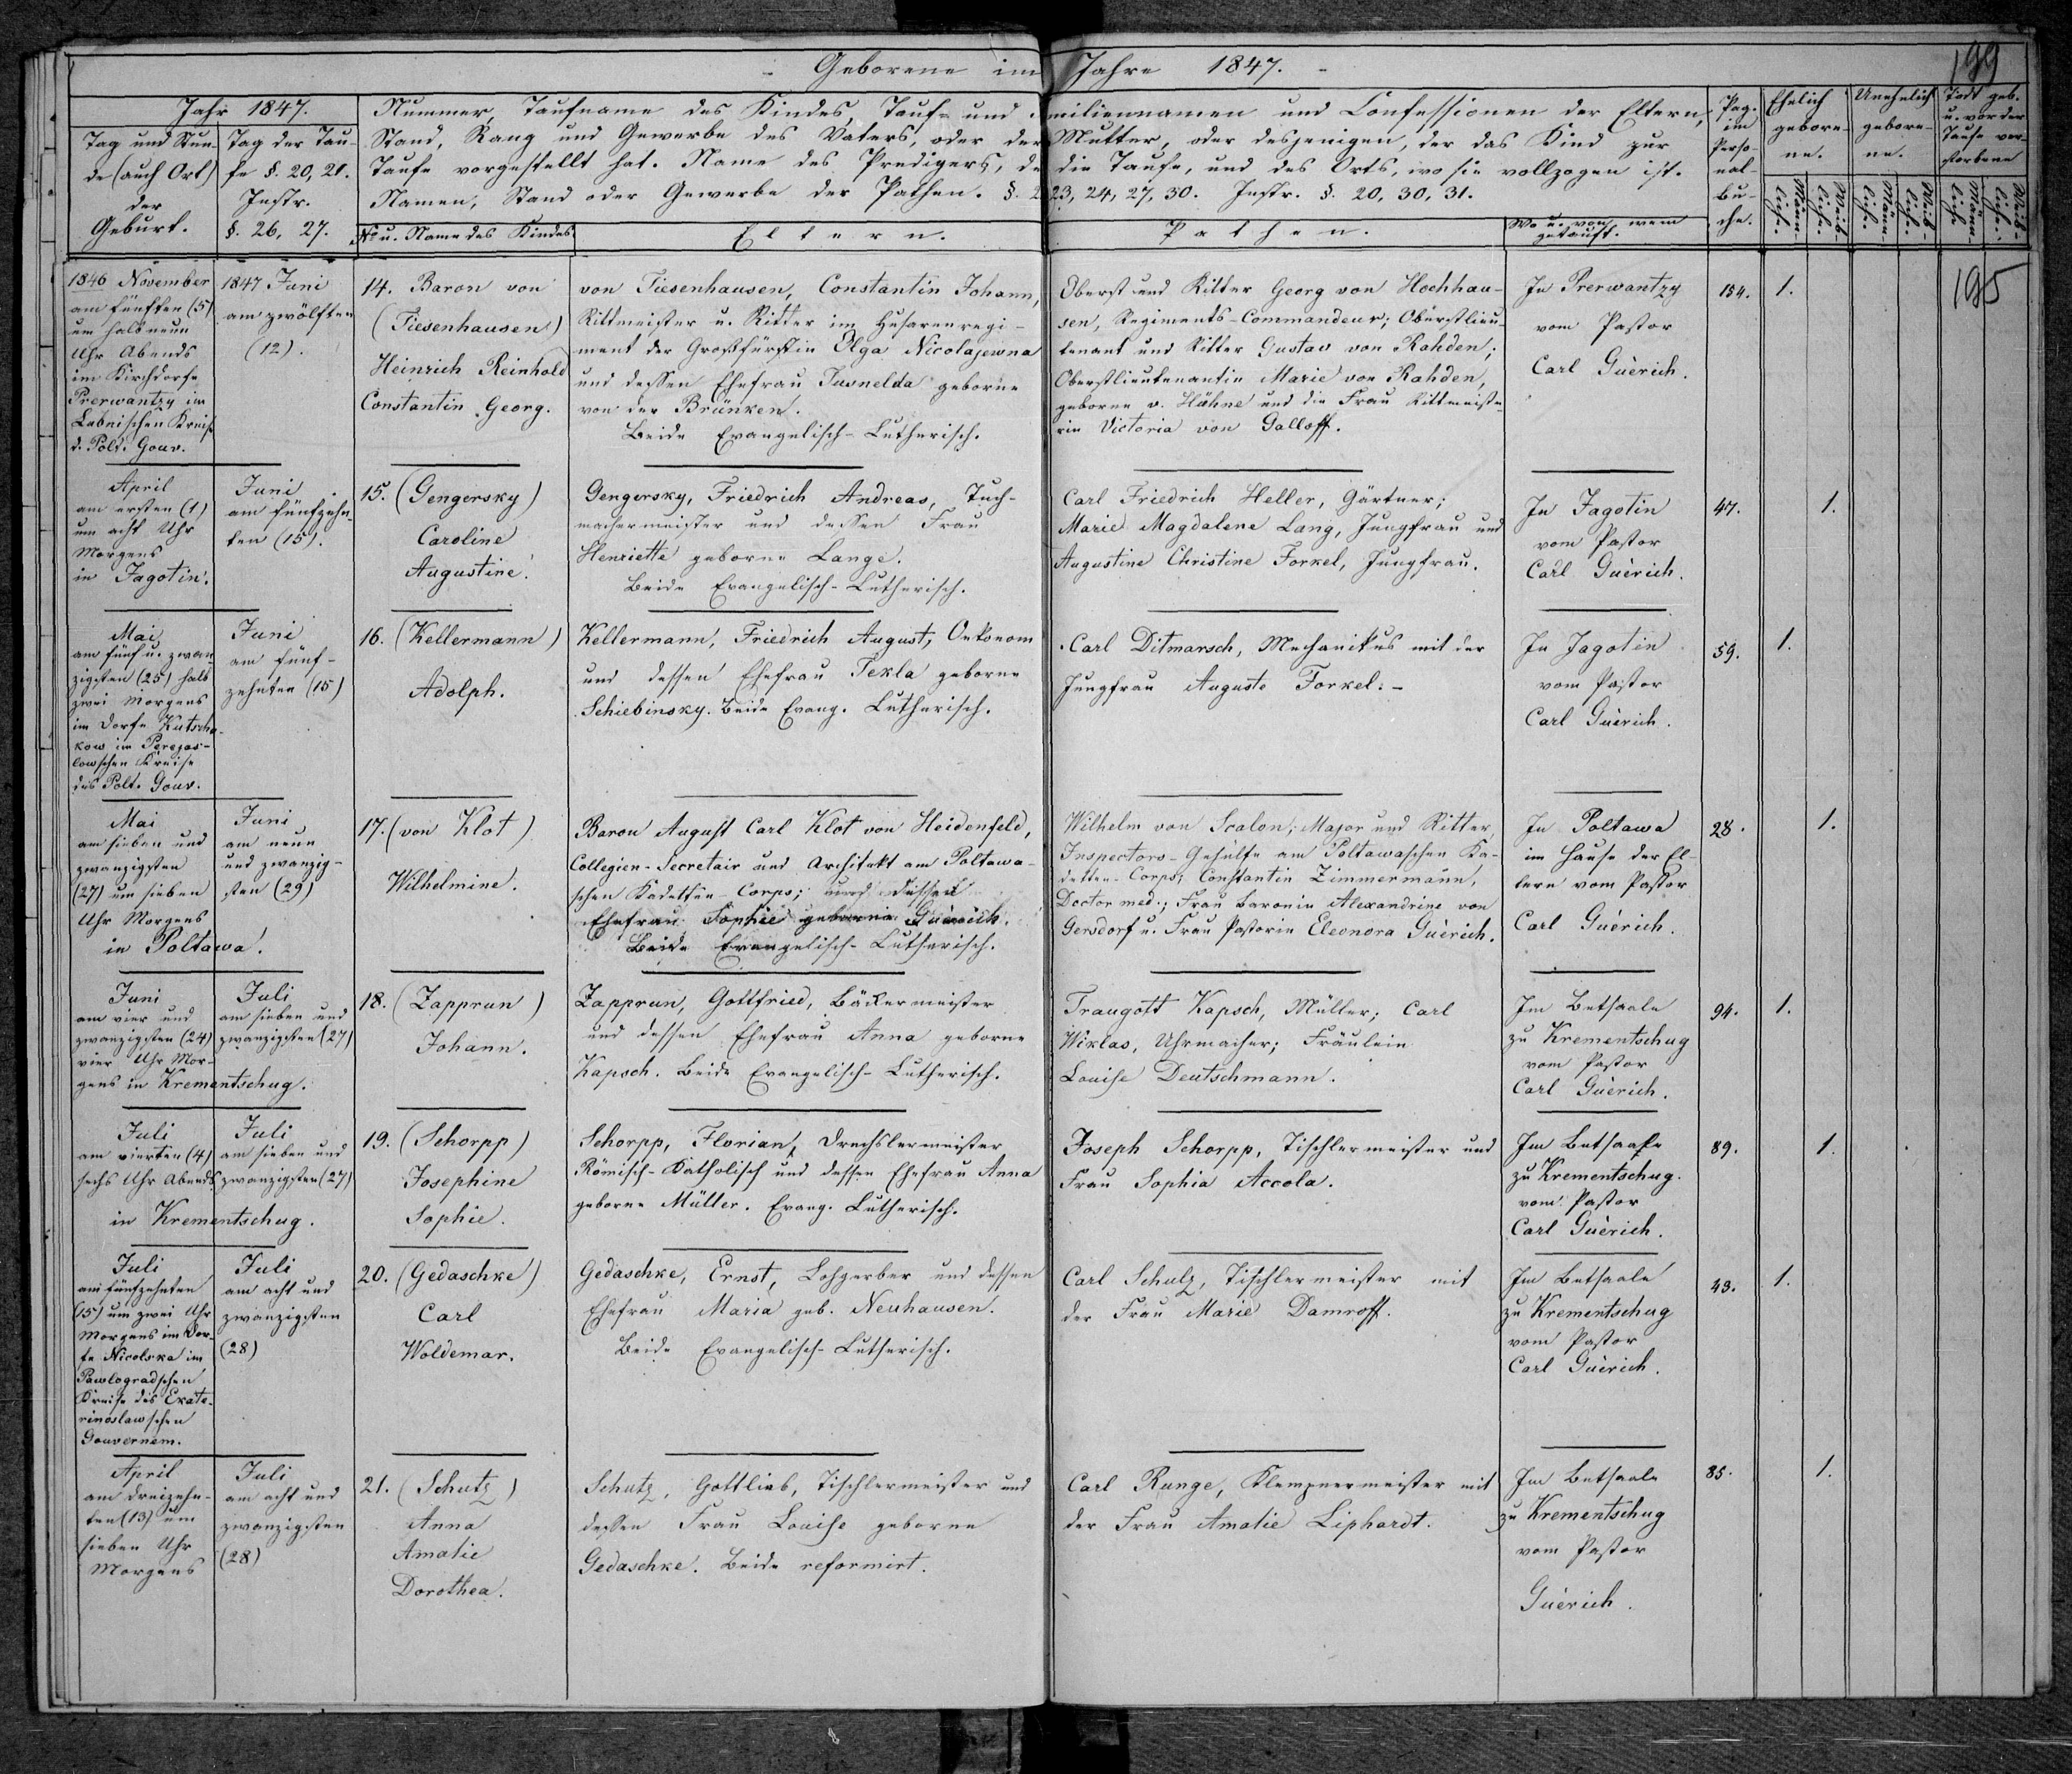 Geborene im Jahre 1847.
199
Jahr 1847.
Tag und Stun-
de (auch Ort)
der
Geburt.
Tag der Tau-
fe §. 20, 21.
Instr.
§. 26, 27.
Nummer, Taufname des Kindes, Tauf- und miliennamen und Confessionen der Eltern,
Stand, Rang und Gewerbe des Vaters, oder der Mutter, oder desjenigen, der das Kind zur
Taufe vorgestellt hat. Name des Predigers, de die Taufe, und des Orts, wo sie vollzogen ist.
Namen, Stand oder Gewerbe der Pathen. §. 23, 24, 27, 30. Instr. §. 20, 30, 31.
No u. Name des Kindes
Eltern.
Pathen.
Wo u. von wem
getauft.
Pag.
im
Perso-
nal-
bu-
che.
Ehelich
gebore-
ne.
Unehelich
gebore-
ne.
Todt geb.
u. vor der
Taufe ver-
storbene
Männ-
lich.
Weib-
lich.
Männ-
lich.
Weib-
lich.
Männ-
lich.
Weib-
lich.
195
1846 November
am fünften (5)
um halb neun
Uhr Abends
im Kirchdorfe
Prerwantzy im
Lubnischen Kreise
d. Polt. Gouv.
1847 Juni
am zwölften
(12).
14. Baron von
(Tiesenhausen)
Heinrich Reinhold
Constantin Georg.
von Tiesenhausen, Constantin Johann,
Rittmeister u. Ritter im Husarenregi-
ment der Großfürstin Olga Nicolajewna
und dessen Ehefrau Tusnelda geborne
von der Brünken.
Beide Evangelisch-Lutherisch.
Oberst und Ritter Georg von Hochhau-
sen, Regiments-Commandeur; Oberstlieu-
tenant und Ritter Gustav von Rahden;
Oberstlieutenantin Marie von Rahden,
geborne v. Hühne und die Frau Rittmeiste-
rin Victoria von Galloff.
In Prerwantzy
vom Pastor
Carl Guèrich.
154.
1.
April
am ersten (1)
um acht Uhr
Morgens
in Jagotin.
Juni
am fünfzehn-
ten (15).
15. (Gengersky)
Caroline
Augustine.
Gengersky, Friedrich Andreas, Tuch-
machermeister und dessen Frau
Henriette geborne Lange.
Beide Evangelisch-Lutherisch.
Carl Friedrich Heller, Gärtner;
Marie Magdalene Lang, Jungfrau und
Augustine Christine Forkel, Jungfrau.
In Jagotin
vom Pastor
Carl Guèrich.
47.
1.
Mai
am fünf u. zwan-
zigsten (25) halb
zwei Morgens
im Dorfe Kutscha-
kow im Perejas-
lowschen Kreise
des Polt. Gouv.
Juni
am fünf-
zehnten (15)
16. (Kellermann)
Adolph.
Kellermann, Friedrich August, Oekonom
und dessen Ehefrau Tekla geborne
Schiebinsky. Beide Evang. Lutherisch.
Carl Ditmarsch, Mechanikus mit der
Jungfrau Auguste Forkel.
In Jagotin
vom Pastor
Carl Guèrich.
59.
1.
Mai
am sieben und
zwanzigsten
(27) um sieben
Uhr Morgens
in Poltawa.
Juni
am neun
und zwanzig-
sten (29)
17. (von Klot)
Wilhelmine.
Baron August Carl Klot von Heidenfeld,
Collegien-Secretair und Architekt am Poltawa-
schen Kadetten-Corps; und dessen
Ehefrau Sophie geborne Guèrich.
Beide Evangelisch-Lutherisch.
Wilhelm von Scalon, Major und Ritter,
Inspectors-Gehülfe am Poltawaschen Ka-
detten-Corps; Constantin Zimmermann,
Doctor med.; Frau Baronin Alexandrine von
Gersdorf u. Frau Pastorin Eleonora Guèrich.
In Poltawa
im Hause der El-
tern vom Pastor
Carl Guèrich.
28.
1.
Juni
am vier und
zwanzigsten (24)
vier Uhr Mor-
gens in Krementschug.
Juli
am sieben und
zwanzigsten (27)
18. (Zapprun)
Johann.
Zapprun, Gottfried, Bäckermeister
und dessen Ehefrau Anna geborne
Kapsch. Beide Evangelisch-Lutherisch.
Traugott Kapsch, Müller; Carl
Wiklas, Uhrmacher; Fräulein
Louise Deutschmann.
Im Betsaale
zu Krementschug
vom Pastor
Carl Guèrich.
94.
1.
Juli
am vierten (4)
sechs Uhr Abends
in Krementschug.
Juli
am sieben und
zwanzigsten (27)
19. (Schorpp)
Josephine
Sophie.
Schorpp, Florian, Drechslermeister
Römisch-Katholisch und dessen Ehefrau Anna
geborne Müller. Evang. Lutherisch.
Joseph Schorpp, Tischlermeister und
Frau Sophia Accola.
Im Betsaale
zu Krementschug.
vom Pastor
Carl Guèrich.
89.
1.
Juli
am fünfzehnten
(15) um zwei Uhr
Morgens im Dor-
fe Nicolska im
Pawlogradschen
Kreise des Exate-
rinoslawschen
Gouvernem.
Juli
am acht und
zwanzigsten
(28)
20. (Gedaschke)
Carl
Woldemar.
Gedaschke, Ernst, Lohgerber und dessen
Ehefrau Maria geb. Neuhausen.
Beide Evangelisch-Lutherisch.
Carl Schulz, Tischlermeister mit
der Frau Marie Damroff.
Im Betsaale
zu Krementschug
vom Pastor
Carl Guèrich.
43.
1.
April
am dreizehn-
ten (13) um
sieben Uhr
Morgens
Juli
am acht und
zwanzigsten
(28)
21. (Schutz)
Anna
Amalie
Dorothea.
Schutz, Gottlieb, Tischlermeister und
dessen Frau Louise geborne
Gedaschke. Beide reformirt.
Carl Runge, Klempnermeister mit
der Frau Amalie Liphardt.
Im Betsaale
zu Krementschug
vom Pastor
Guèrich.
85.
1.